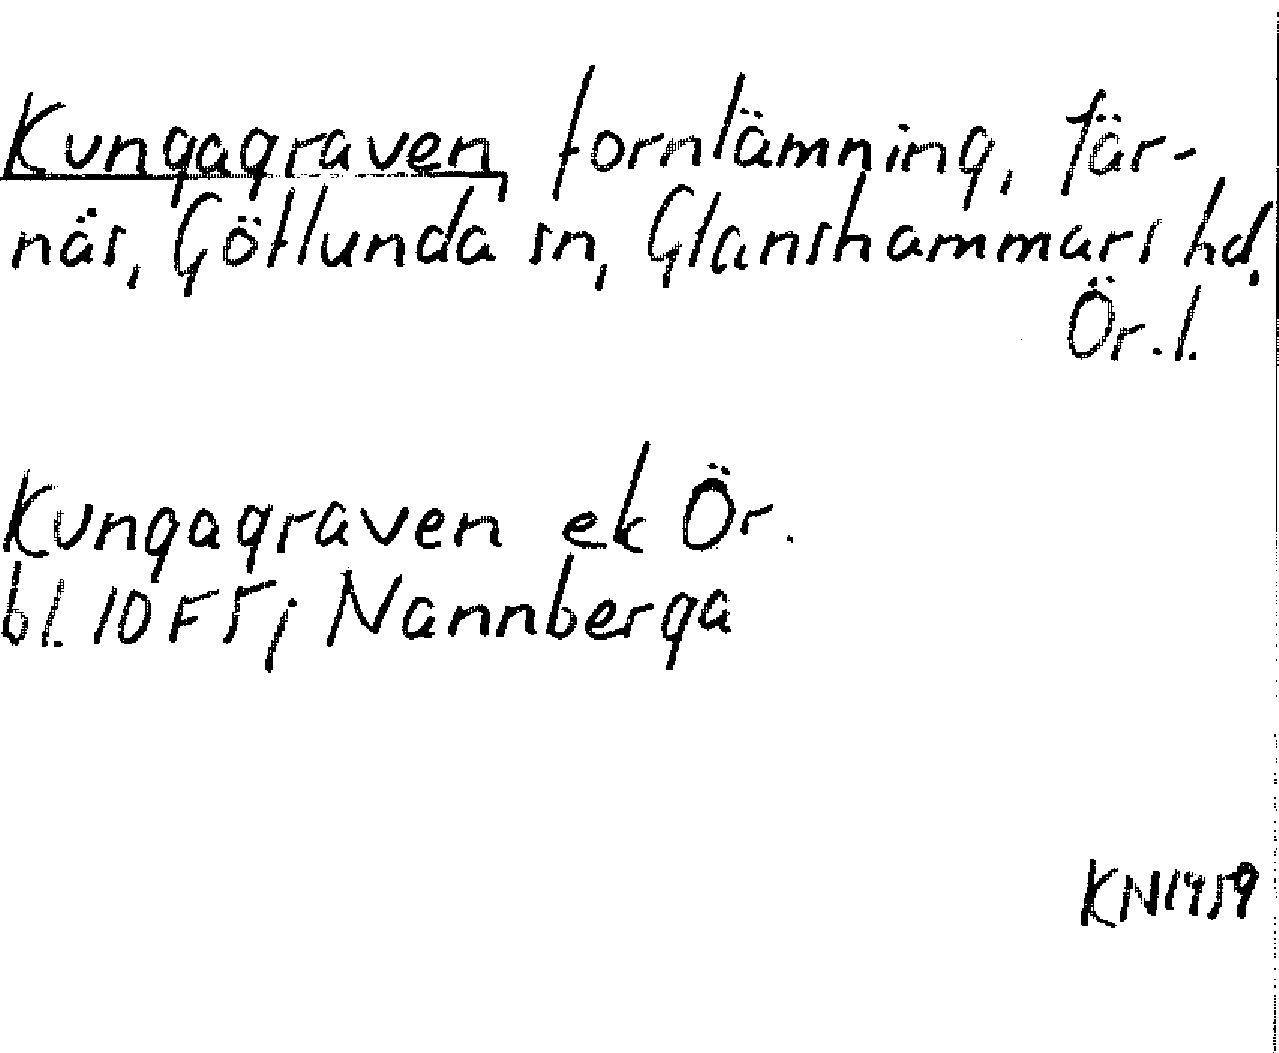 Kungagraven, fornlämning, Tär-
näs, Götlunda sn, Glanshammars hd,
Ör. l.
Kungagraven ek Ör.
bl. 10F5; Nannberga
KN1959